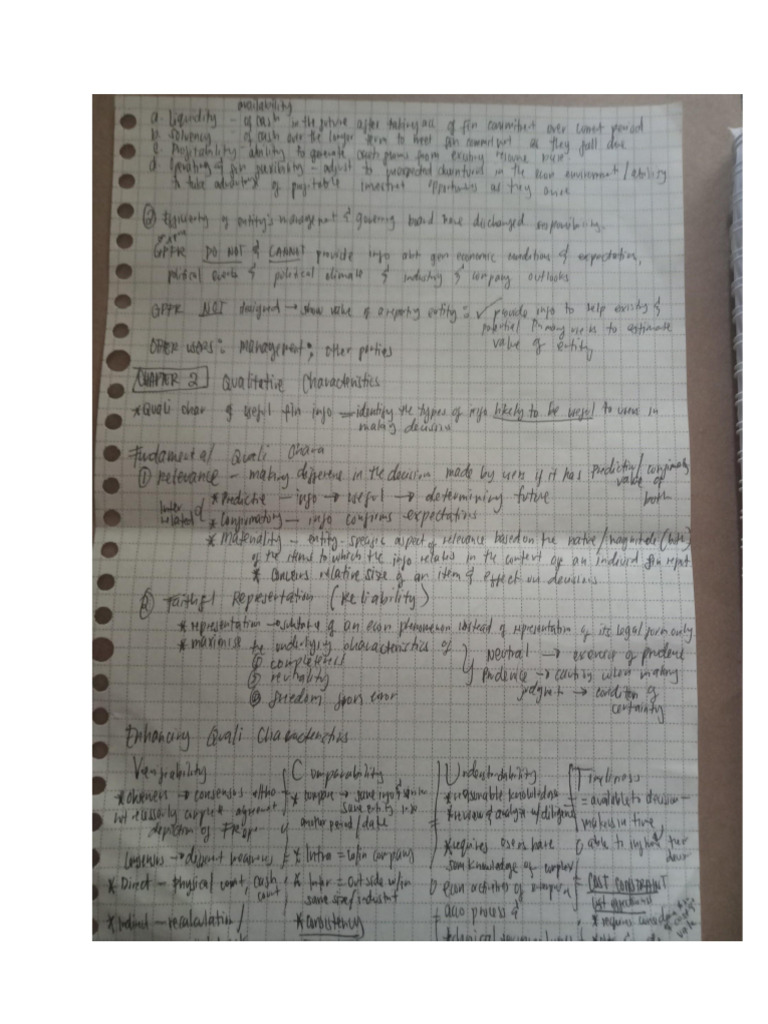 availability
a. Liquidity - of cash in the future after taking acc of fin commitment over period
b. Solvency - of cash over the longer term to meet fin commitment as they fall due
c. Profitability - ability to generate from existing
d. Operating & fin flexibility - adjust to unexpected in the econ environment / ability
to take of profitable investment opportunities as they arise
② Efficiency of entity's management & governing board have discharged responsibility.
GPFR DO NOT & CANNOT provide info abt gen economic conditions & expectation,
political events & political climate & industry & company outlooks
GPFR NOT designed → show value of a reporting entity; ✓ provide info to help existing &
potential primary users to estimate
value of entity
OTHER USERS: Management; other parties
CHAPTER 2 Qualitative Characteristics
* Quali char of useful fin info — identify the types of info likely to be useful to users in
making decision
Fundamental Quali Chara
① Relevance - making difference in the decision made by users if it has
value of
both
inter
related
* Predictive — info → useful → determining future
* Confirmatory — info confirms expectations
* Materiality - entity-specific aspect of relevance based on the nature/magnitude (both)
of the items to which the info relates in the context of an individ fin report
* concerns relative size of an item & effect on decisions
② Faithful Representation (Reliability)
* representation — of an econ phenomenon instead of representation of its legal form only
* maximise the underlying characteristics of
① completeness
② neutrality
③ freedom from error
Neutral → exercise of prudence
Prudence → caution when making
judgment → condition of
certainty
Enhancing Quali Characteristics
Verifiability
* consensus altho
not necessarily complete agreement
depiction of FR
* Direct - physical count, cash
count
* Indirect — recalculation /
Comparability
* compare → same info
same entity info
another period / date
* Intra = w/in company
* Inter = outside w/in
same size / industry
* consistency
Understandability
* reasonable knowledge
* review & analyze w/ diligence
* requires users have
some knowledge of complex
econ activities of
acco process &
Timeliness
= available to decision-
makers in time
able to
COST CONSTRAINT
* requires
value